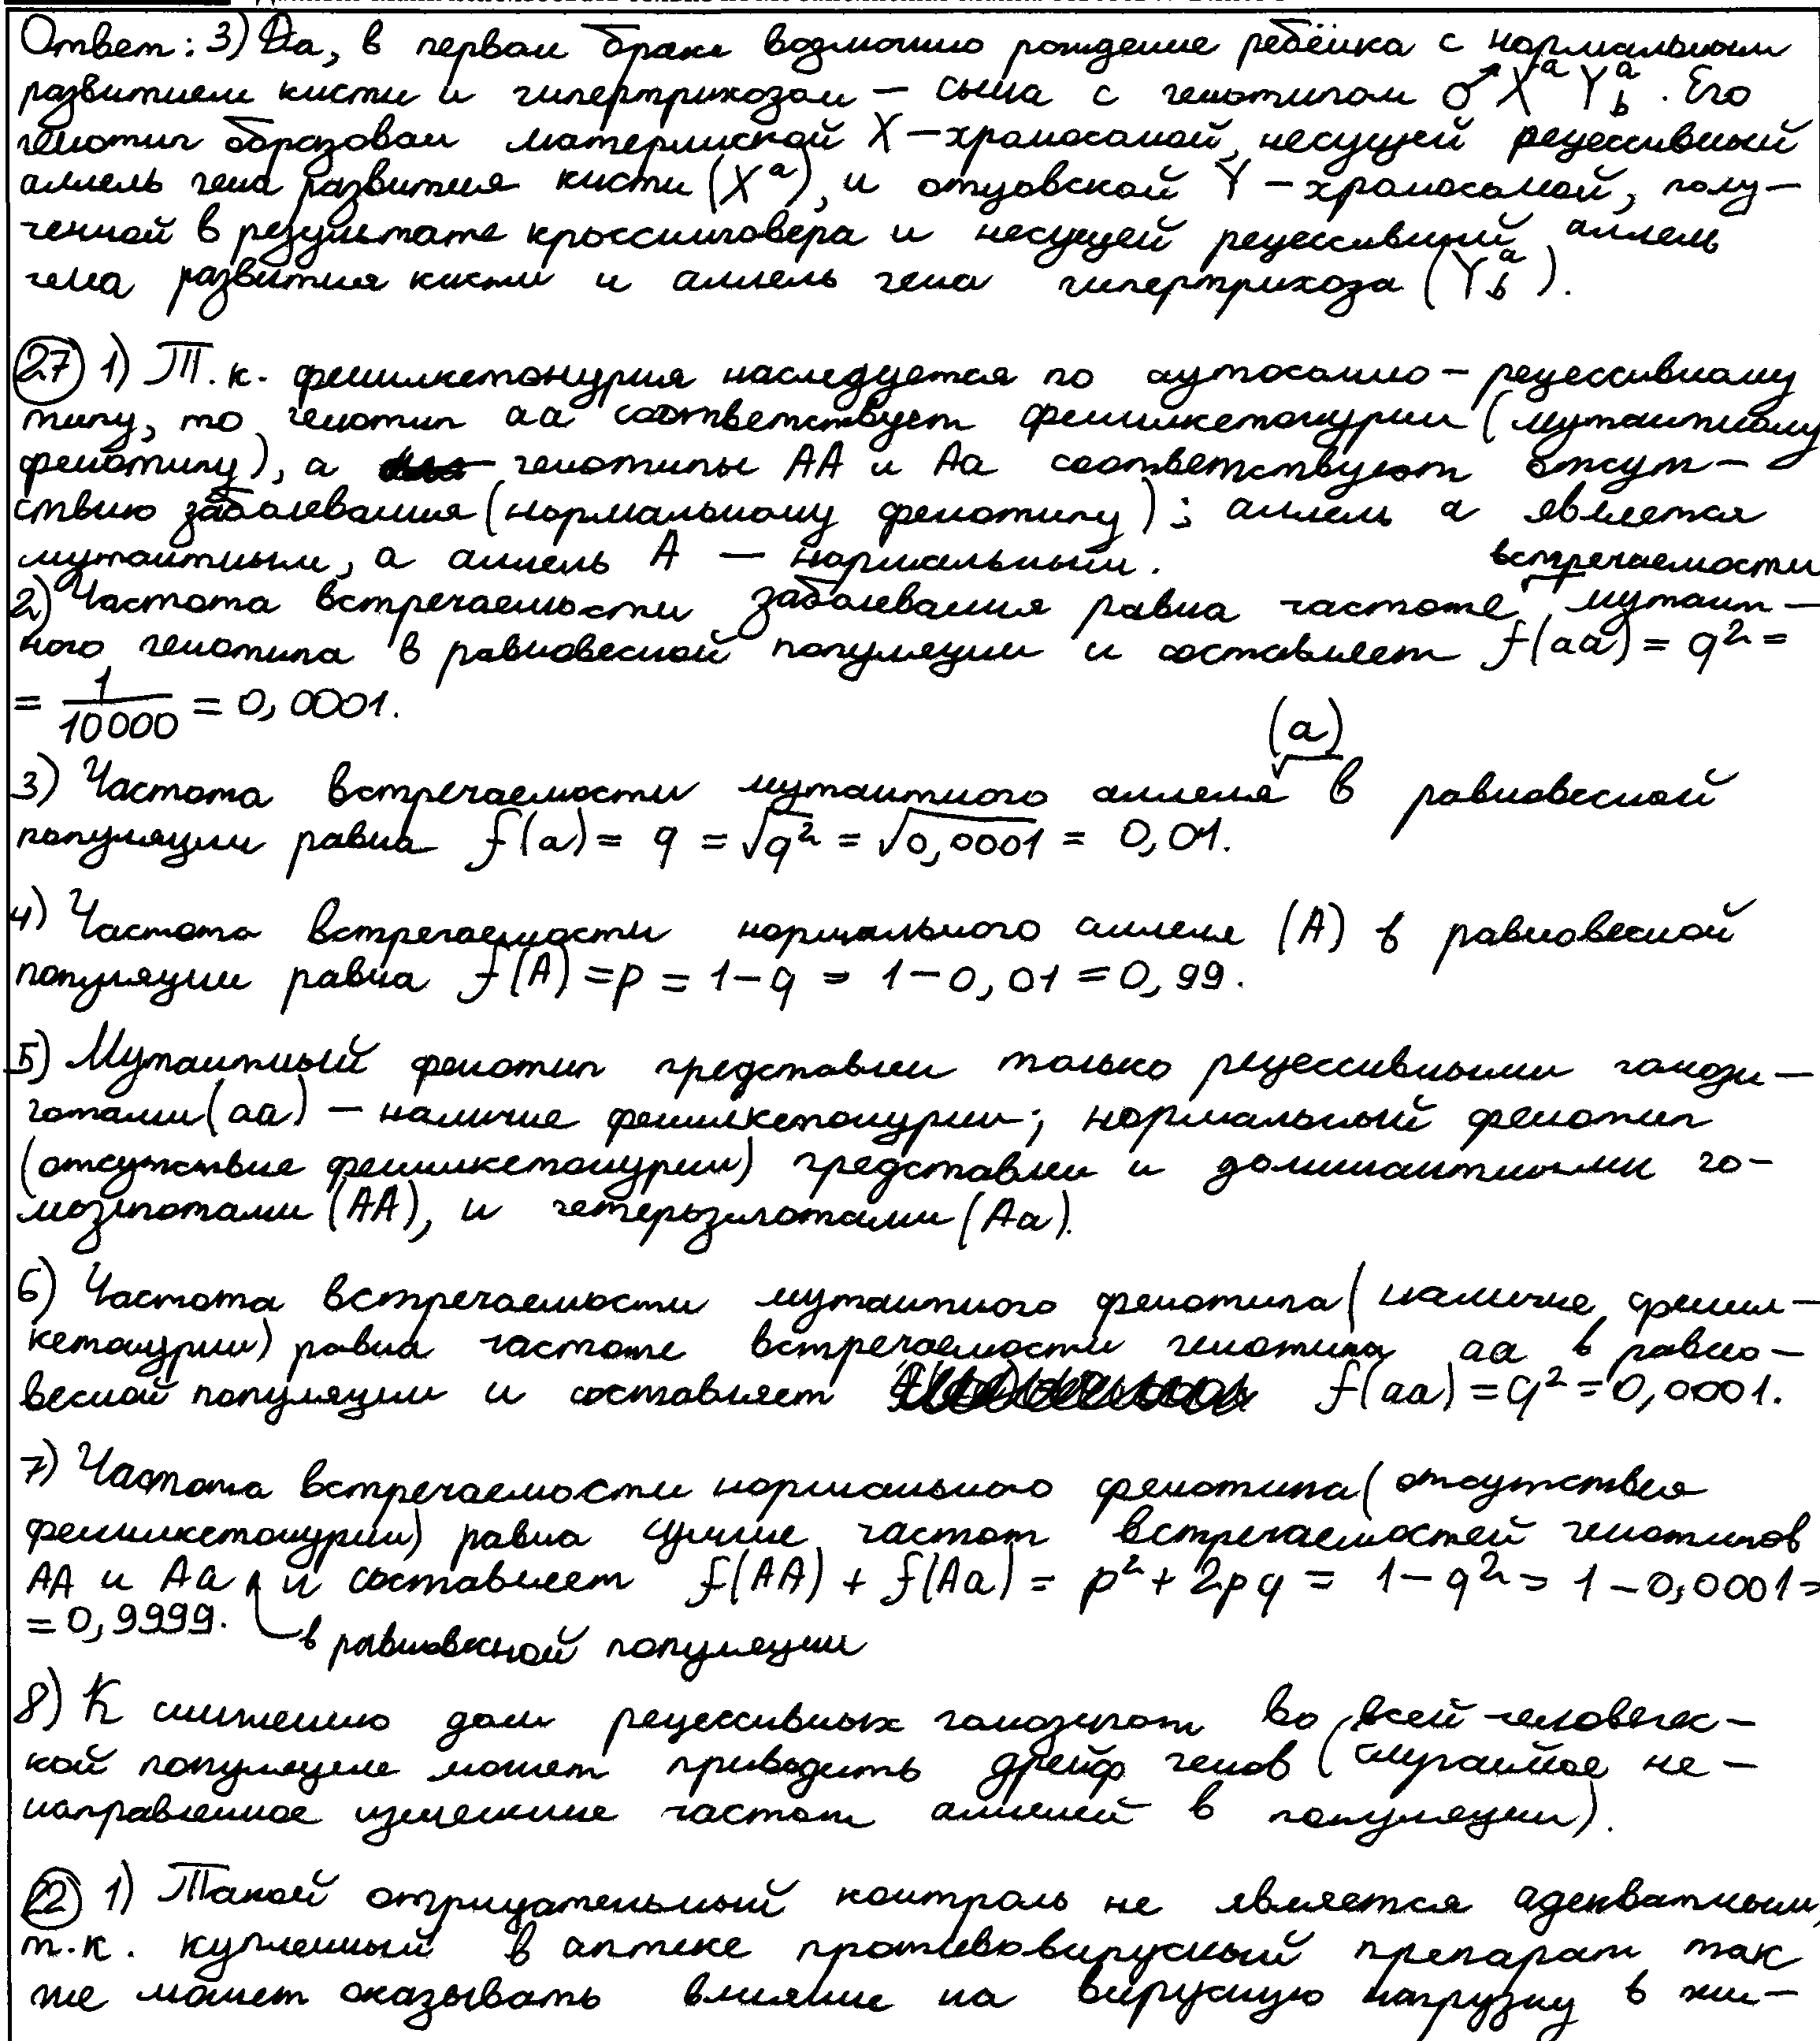 Ответ: 3) Да, в первом браке возможно рождение ребёнка с нормальным
развитием кисти и гипертрихозом — сына с генотипом ♂ XᵃYᵇᵃ. Его
генотип образован материнской X-хромосомой, несущей рецессивный
аллель гена развития кисти (Xᵃ), и отцовской Y-хромосомой, полу-
ченной в результате кроссинговера и несущей рецессивный аллель
гена развития кисти и аллель гена гипертрихоза (Yᵇᵃ).
27) 1) Т.к. фенилкетонурия наследуется по аутосомно-рецессивному
типу, то генотип aa соответствует фенилкетонурии (мутантному
фенотипу), а генотипы AA и Aa соответствуют отсут-
ствию заболевания (нормальному фенотипу); аллель a является
мутантным, а аллель A — нормальным.
2) Частота встречаемости заболевания равна частоте встречаемости мутант-
ного генотипа в равновесной популяции и составляет f(aa) = q² =
= 1/10000 = 0,0001.
3) Частота встречаемости мутантного аллеля (a) в равновесной
популяции равна f(a) = q = √q² = √0,0001 = 0,01.
4) Частота встречаемости нормального аллеля (A) в равновесной
популяции равна f(A) = p = 1-q = 1-0,01 = 0,99.
5) Мутантный фенотип представлен только рецессивными гомози-
готами (aa) — наличие фенилкетонурии; нормальный фенотип
(отсутствие фенилкетонурии) представлен и доминантными го-
мозиготами (AA), и гетерозиготами (Aa).
6) Частота встречаемости мутантного фенотипа (наличие фенил-
кетонурии) равна частоте встречаемости генотипа aa в равно-
весной популяции и составляет f(aa) = q² = 0,0001.
7) Частота встречаемости нормального фенотипа (отсутствия
фенилкетонурии) равна сумме частот встречаемостей генотипов
AA и Aa в равновесной популяции и составляет f(AA) + f(Aa) = p² + 2pq = 1 - q² = 1 - 0,0001 =
= 0,9999.
8) К снижению доли рецессивных гомозигот во всей человечес-
кой популяции может приводить дрейф генов (случайное не-
направленное изменение частот аллелей в популяции).
22) 1) Такой отрицательный контроль не является адекватным,
т.к. купленный в аптеке противовирусный препарат так
же может оказывать влияние на вирусную нагрузку в жи-